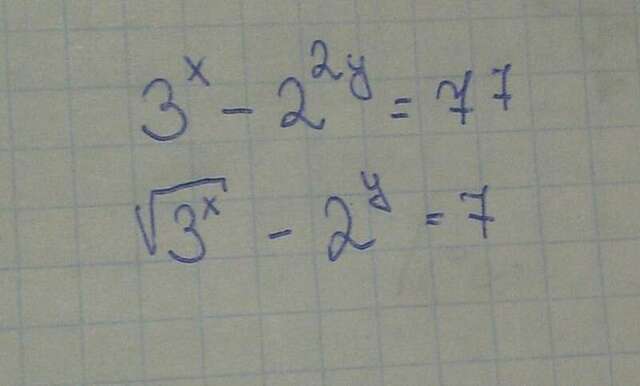 3^x - 2^{2y} = 77
√(3^x) - 2^y = 7